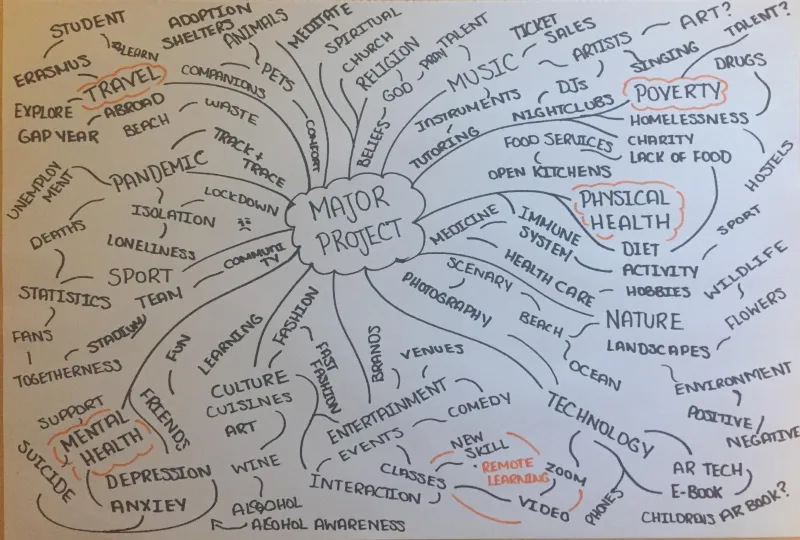 STUDENT
LEARN
ERASMUS
TRAVEL
EXPLORE
ABROAD
GAP YEAR
BEACH
ADOPTION
SHELTERS
ANIMALS
PETS
COMPANIONS
COMFORT
WASTE
MEDITATE
SPIRITUAL
CHURCH
RELIGION
GOD
PRAY
BELIEFS
TALENT
MUSIC
TICKET
SALES
ARTISTS
ART?
SINGING
TALENT?
DJs
INSTRUMENTS
NIGHTCLUBS
TUTORING
POVERTY
DRUGS
HOMELESSNESS
FOOD SERVICES
CHARITY
LACK OF FOOD
OPEN KITCHENS
HOSTELS
TRACK +
TRACE
PANDEMIC
UNEMPLOY
MENT
LOCKDOWN
ISOLATION
DEATHS
LONELINESS
COMMUNI
TY
MAJOR
PROJECT
PHYSICAL
HEALTH
MEDICINE
IMMUNE
SYSTEM
DIET
ACTIVITY
SPORT
HEALTH CARE
HOBBIES
SPORT
TEAM
STATISTICS
STADIUM
FANS
TOGETHERNESS
SCENARY
PHOTOGRAPHY
BEACH
OCEAN
NATURE
LANDSCAPES
WILDLIFE
FLOWERS
ENVIRONMENT
POSITIVE/
NEGATIVE
FUN
LEARNING
FASHION
FAST
FASHION
BRANDS
VENUES
CULTURE
CUISINES
ART
WINE
ALCOHOL
ALCOHOL AWARENESS
ENTERTAINMENT
COMEDY
EVENTS
CLASSES
INTERACTION
NEW
SKILL
REMOTE
LEARNING
ZOOM
VIDEO
TECHNOLOGY
PHONES
AR TECH
E-BOOK
CHILDRENS AR BOOK?
SUPPORT
MENTAL
HEALTH
FRIENDS
SUICIDE
DEPRESSION
ANXIEY